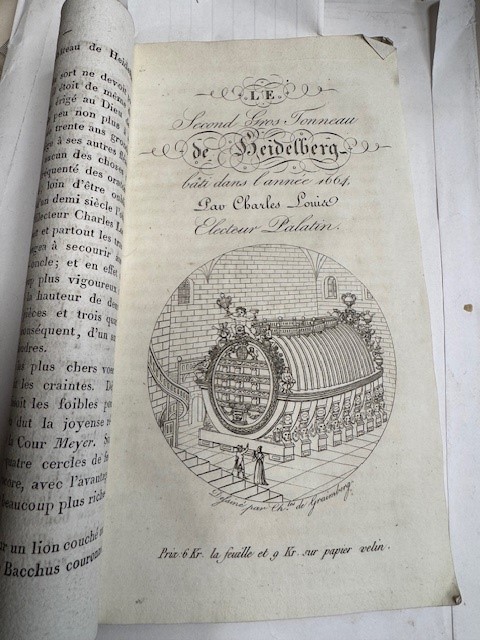 âteau de Heidel
sort ne devoit
étoit de même
rigé au Dieu d
peu non plus
trente ans gro
e à ses autres fl
aucun des choses
équenté des orato
loin d'être oubl
un demi siècle l'
lecteur Charles Lo
e et partout les tra
gea à secourir au
oncle; et en effet
up plus vigoureux
la hauteur de de
pièces et trois qua
onséquent, d'un s
dres.
s plus chers vœ
les craintes. De
oit les foibles
dut la joyense
la Cour Meyer. S
quatre cercles de f
ore, avec l'avantag
beaucoup plus riche
ur un lion couché
Bacchus couronn
LE
Second Gros Tonneau
de Heidelberg
bâti dans l'année 1664.
Par Charles Louis
Electeur Palatin.
Dessiné par Ch. de Graimberg
Prix 6 Kr. la feuille et 9 Kr. sur papier velin.